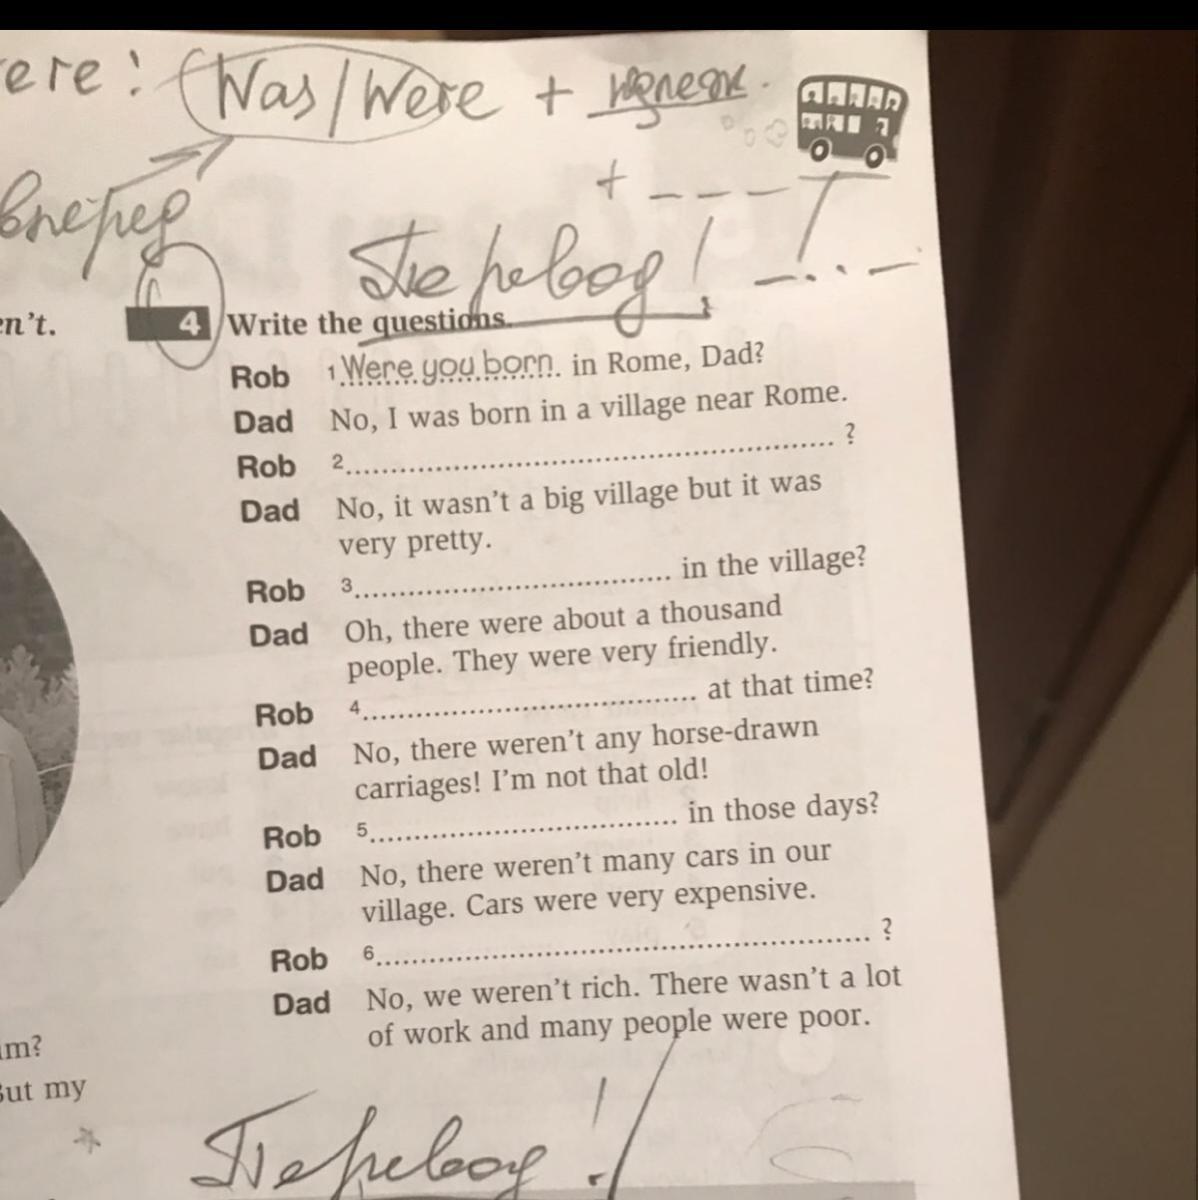 ere! Was/Were +
+ _ _ _
вперед
Перевод! _ . . _
en't.
4 Write the questions.
Rob 1 Were you born in Rome, Dad?
Dad No, I was born in a village near Rome.
Rob 2 ............ ?
Dad No, it wasn't a big village but it was
very pretty.
Rob 3 ............ in the village?
Dad Oh, there were about a thousand
people. They were very friendly.
Rob 4 ............ at that time?
Dad No, there weren't any horse-drawn
carriages! I'm not that old!
Rob 5 ............ in those days?
Dad No, there weren't many cars in our
village. Cars were very expensive.
Rob 6 ............ ?
Dad No, we weren't rich. There wasn't a lot
of work and many people were poor.
im?
But my
Перевод!